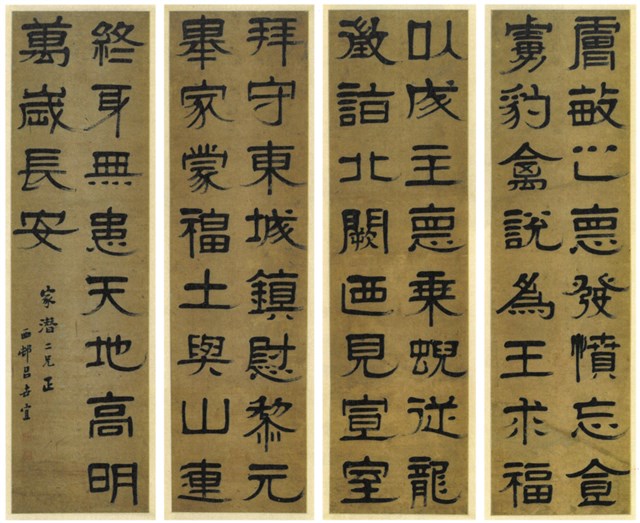 膚敏之悳發憤忘食
虜豹禽說為王求福
以成主悳乘蜺從龍
徵詣北闕迺見宣室
拜守東城鎮慰黎元
舉家蒙福土與山連
終身無患天地高明
萬歲長安
家潛二兄正
西邨呂世宜